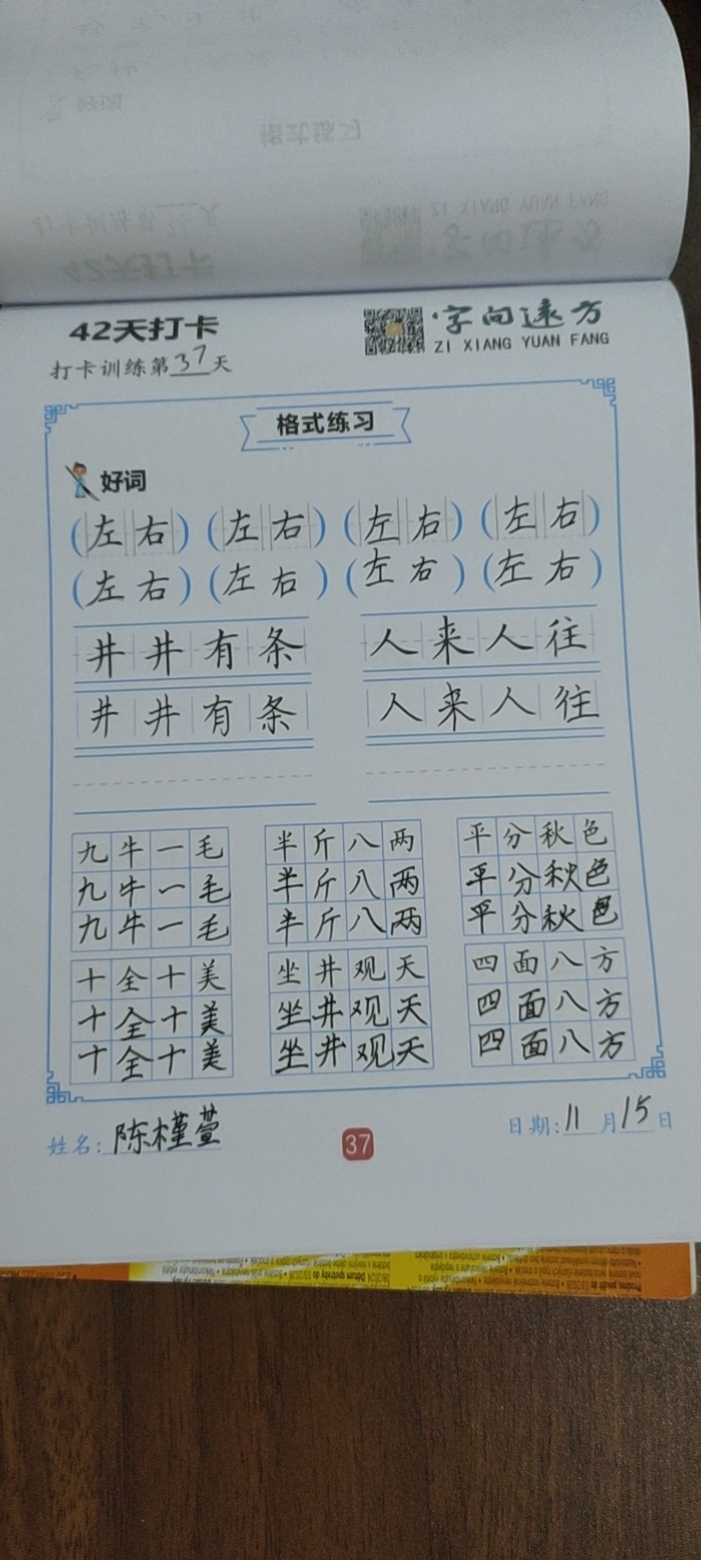 42天打卡
字向远方
打卡训练第37天
ZI XIANG YUAN FANG
格式练习
好词
(左右) (左右) (左右) (左右)
(左右) (左右) (左右) (左右)
井井有条 人来人往
井井有条 人来人往
九牛一毛 半斤八两 平分秋色
九牛一毛 半斤八两 平分秋色
九牛一毛 半斤八两 平分秋色
十全十美 坐井观天 四面八方
十全十美 坐井观天 四面八方
十全十美 坐井观天 四面八方
姓名: 陈槿萱
37
日期: 11月15日